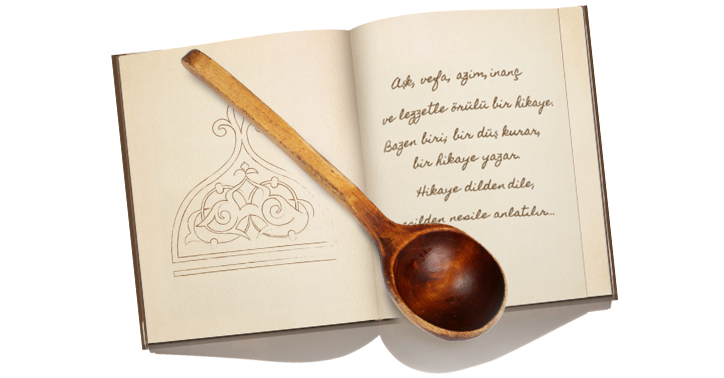 Aşk, vefa, azim, inanç
ve lezzetle örülü bir hikaye.
Bazen biri; bir düş kurar,
bir hikaye yazar.
Hikaye dilden dile,
nesile anlatılır...